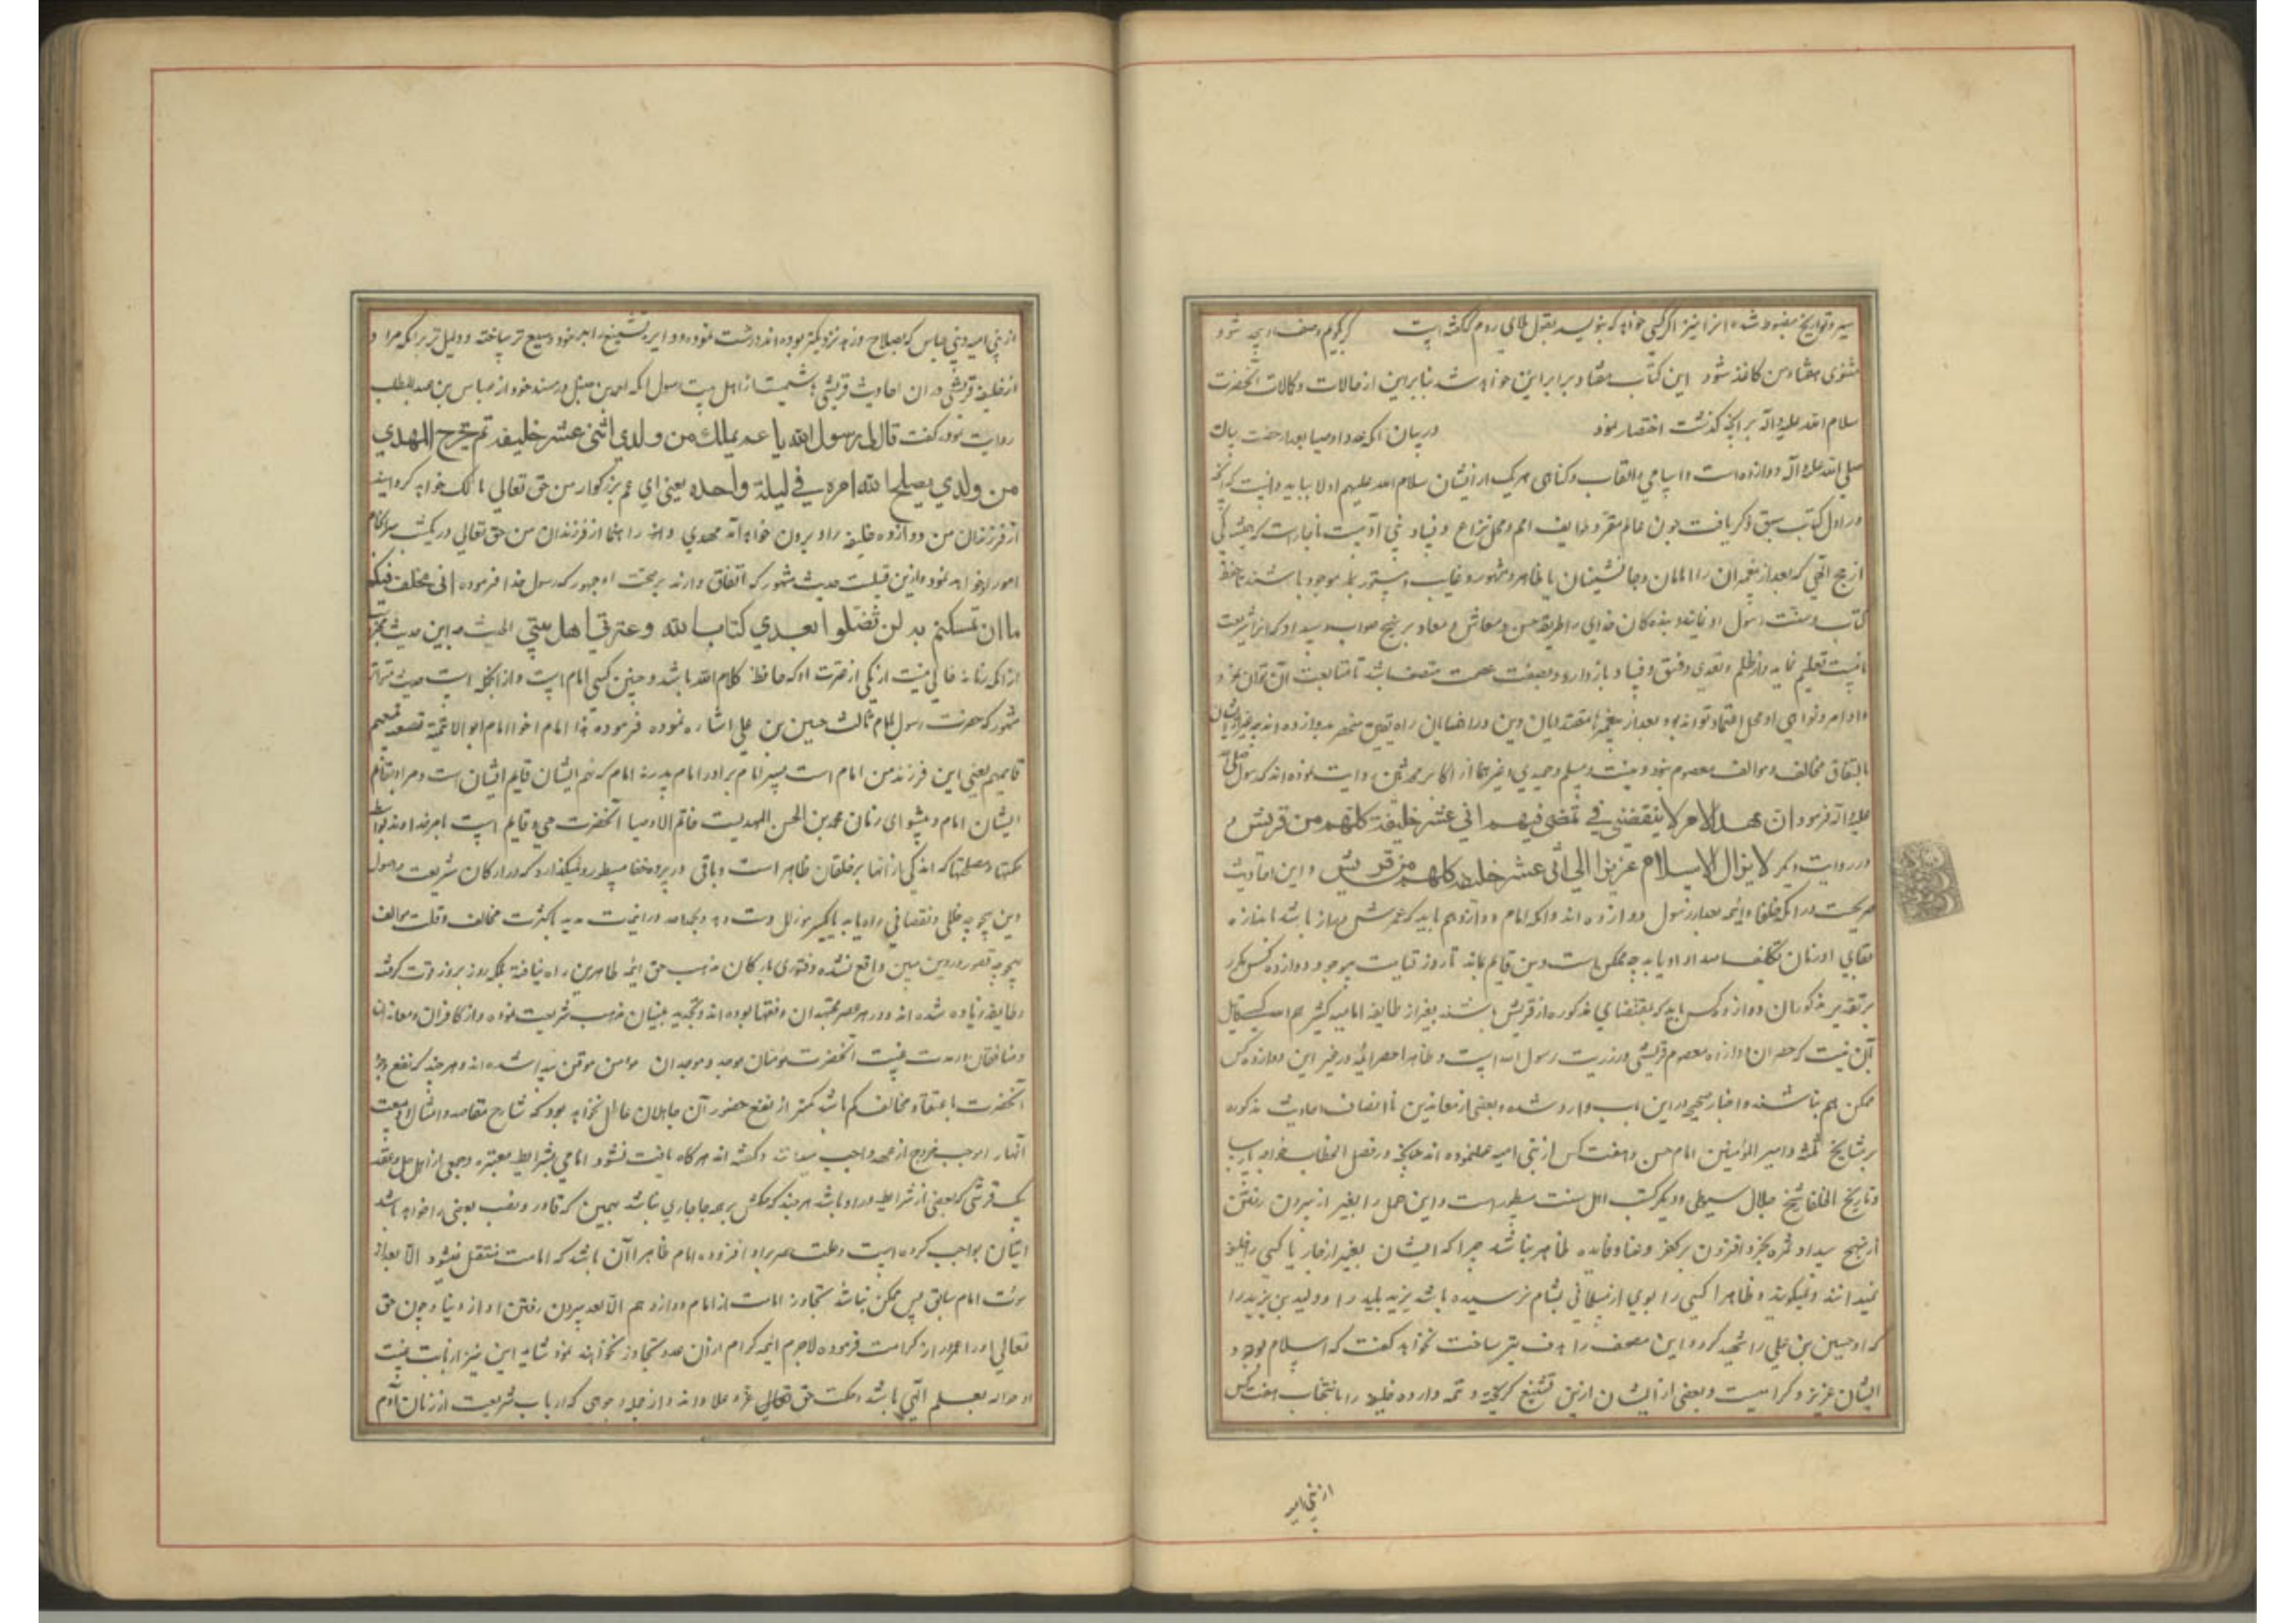 سیر و تواریخ مضبوط شده انرا نیز اگر کسی خواهد که بنویسد بقول ملای روم که گفته است گر بگویم وصف او بیحد شود
مثنوی هفتاد من کاغذ شود این کتاب هفتاد برابر این خواهد شد بنابراین از حالات و کمالات آنحضرت
سلام الله علیه و آله بر آنچه گذشت اختصار نمود در بیان آنکه عدد اوصیا بعد از حضرت رسالت
صلی الله علیه و آله دوازده است و اسامی و القاب و کنای هر یک از ایشان سلام الله علیهم اولا بباید دانست که آنچه
در اول کتاب سبق ذکر یافت چون عالم مقر و طوایف امم و محل نزاع و فساد بنی آدمست ناچار است که همیشه یکی
از حجج الهی که بعد از پیغمبران را امامان و جانشینان یا ظاهر و مشهور و غایب و مستور بوده موجود باشند تا حفظ
کتاب و سنت رسول او نماید و بندگان خدای را طریقه حسن و معاش و معاد بر نهج صواب و سداد که انرا شریعت
نامست تعلیم نماید و از ظلم و تعدی و فسق و فساد باز دارد و بصفت عصمت متصف باشد تا متابعت آن توان نمود
و اوامر و نواهی او محل اعتماد تواند بود و بعد از پیغمبر ما مقتدایان دین و راهنمایان راه یقین منحصر بدوازده اند
باتفاق مخالف و موالف معصوم بوده و مسلم و حمیدی و غیرهما از اکابر محدثین روایت نموده اند که رسول صلی الله
علیه و آله فرمود ان هذا الامر لا ینقضی فی تمضی فیهم اثنی عشر خلیفة کلهم من قریش و
در روایت دیگر لا یزال الاسلام عزیزا الی اثنی عشر خلیفه کلهم من قریش و این احادیث
صریحست در آنکه خلفا و ائمه بعد از رسول دوازده اند و آنکه امام دوازدهم باید که عمرش دراز باشد باندازه
بقای او زمان تکلیف امتداد یابد چه ممکن است دین قایم بماند تا روز قیامت بوجود دوازده کس مگر
بر تقدیر مذکور آن دوازده کس باید که بمقتضای مذکوره از قریش باشند بغیر از طایفه امامیه کثرهم الله کسی قایل
آن نیست که حصر آن دوازده معصوم قریشی و ذریت رسول الله است و ظاهرا حصر ائمه در غیر این دوازده کس
ممکن هم نباشد و اخبار صحیح در این باب وارد شده و بعضی از معاندین ناانصاف احادیث مذکوره
بر مشایخ ثلثه و امیر المؤمنین و امام حسن و هفت کس از بنی امیه حمل نموده اند چنانچه در فصل الخطاب خواجه پارسا
و تاریخ الخلفا شیخ جلال سیوطی و دیگر کتب اهل سنت مسطور است و این حمل را بغیر از بیرون رفتن
از نهج سداد ثمره بجز افزون بر کفر و عناد و فایده ظاهر نباشد چرا که ایشان بغیر از فاریا کسی را خلیفه
نمیدانند و نمیگویند و ظاهرا کسی را بوی از مسلمانی بمشام نرسیده باشد یزید پلید را و ولید بن یزید را
که او حسین بن علی را شهید کرد و این مصحف را هدف تیر ساخت نخواهد گفت که اسلام بوجود
ایشان عزیز و گرامیست و بعضی از ایشان ازین تشنیع گریخته و تتمه دوازده خلیفه را بانتخاب هفت کس
از بنی امیه
از بنی امیه و بنی عباس که بصلاح و زهد نزدیکتر بوده اند درست نموده و دایره تشنیع را بر خود وسیع تر ساخته و دلیل تر بر آنکه مراد
از خلیفه قرشی در ان احادیث قریشی هاشمیست از اهل بیت رسول آنکه احمد بن حنبل در مسند خود از عباس بن عبدالمطلب
روایت نموده گفت قال لی رسول الله یا عم یملک من ولدی اثنی عشر خلیفه ثم یخرج المهدی
من ولدی یصلح الله امره فی لیلة واحده یعنی ای عم بزرگوار من حق تعالی مالک خواهد گردانید
از فرزندان من دوازده خلیفه را و بیرون خواهد آمد مهدی راهنما از فرزندان من حق تعالی در یکشب سرانجام
امور او خواهد نمود و ازین قبیلست حدیث مشهور که اتفاق دارند بر صحت او جمهور که رسول خدا فرموده انی مخلف فیکم
ما ان تمسکتم به لن تضلوا بعدی کتاب الله و عترتی اهل بیتی الحدیث چه این حدیث مخبر است
از آنکه زمانه خالی نیست از یکی از عترت او که حافظ کلام الله باشد و چنین کسی امام است و از آنجمله است حدیث متواتر
مشهور که حضرت رسول بامام ثالث حسین بن علی اشاره نموده فرموده هذا امام اخو الامام ابو الائمة تسعة تاسعهم
قایمهم یعنی این فرزند من امام است پسر امام برادر امام پدر نه امام که نهم ایشان قایم ایشان است و مراد بقایم
ایشان امام و پیشوای زمان محمد بن الحسن المهدیست خاتم الاوصیا آنحضرت حی و قایم است بامر خداوند بواسطه
حکمتها و مصلحتها که اندکی از آنها بر خلقان ظاهر است و باقی در پرده خفا مستور و نمیگذارد که در ارکان شریعت و اصول
دین بهیچ وجه خللی و نقصانی راه یابد یا بالکلیه زلل دست دهد و بحمد الله در اینمدت مدید با کثرت مخالف و قلت موالف
بهیچ وجه قصور در دین مبین واقع نشده و فتوری بارکان مذهب حق ائمه طاهرین راه نیافته بلکه روز بروز قوت گرفته
و طایفه زیاده شده اند و در هر عصر مجتهدان و فقها بوده اند و تجدید بنیان مذهب شریعت نموده و از کافران و معاندان
و منافقان در مدت غیبت آنحضرت مؤمنان موحد و موحدان مؤمن موقن پیدا شده اند و هر چند که نفع وجود
آنحضرت باعتقاد مخالف کم باشد کمتر از نفع حضور آن جاهلان غافل نخواهد بود که شارح مقاصد و امثال او بیعت
آنها را موجب خروج از عهده واجب میدانند و گفته اند هرگاه یافت نشود امامی بشرایط معتبره و جمعی از اهل حل و عقد
یک قرشی که بعضی از شرایط در او باشد هر چند که حکمش بر همه جا جاری نباشد همین که قادر و نصب بعضی را خواهد باشد
ایشان بواجب کرده است و علت عمر دراز و افزوده امام ظاهرا آن باشد که امامت منتقل نمیشود الا بعد از
موت امام سابق پس ممکن نباشد تجاوز امامت از امام دوازدهم الا بعد بیرون رفتن او از دنیا و چون حق
تعالی او را عمر دراز کرامت فرموده لاجرم ائمه کرام از ان عدد تجاوز نخواهند نمود شاید این نیز از بابت غیبت
او حواله بعلم الهی باشد و حکمت حق تعالی عز و علا داند و از جمله وجوهی که ارباب شریعت از زمان آدم